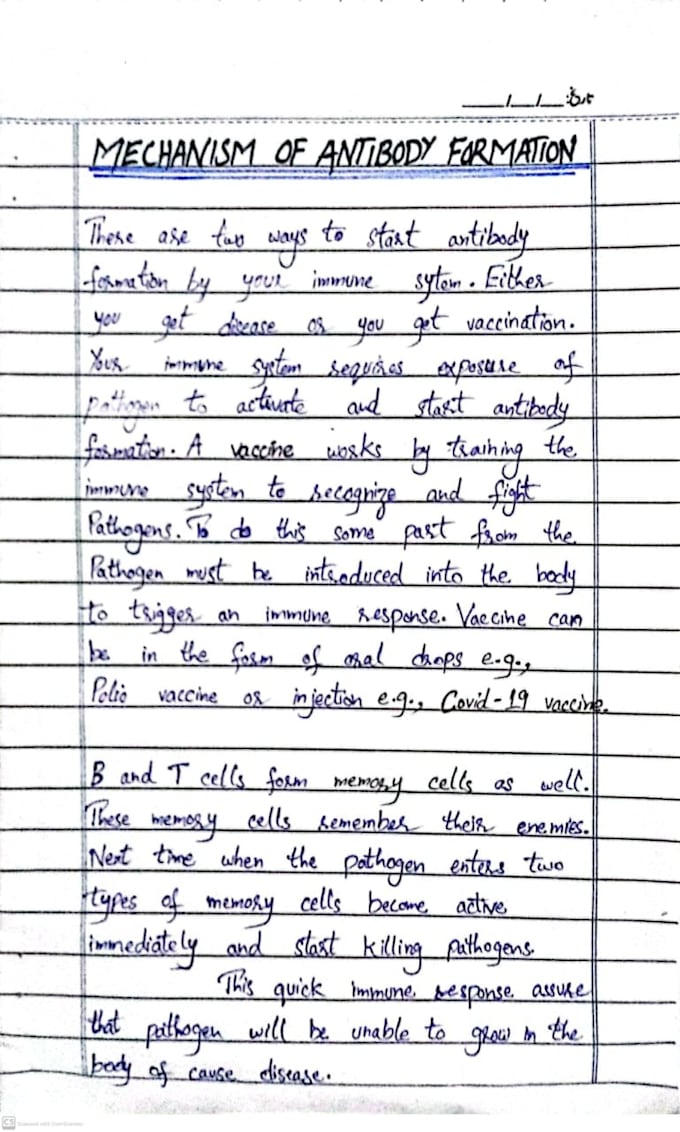 __/__/__
MECHANISM OF ANTIBODY FORMATION
There are two ways to start antibody
formation by your immune sytem. Either
you get disease or you get vaccination.
Your immune system requires exposure of
pathogen to activate and start antibody
formation. A vaccine works by training the
immune system to recognize and fight
Pathogens. To do this some part from the
Pathogen must be introduced into the body
to trigger an immune response. Vaccine can
be in the form of oral drops e.g.,
Polio vaccine or injection e.g., Covid-19 vaccine.
B and T cells form memory cells as well.
These memory cells remember their enemies.
Next time when the pathogen enters two
types of memory cells become active
immediately and start killing pathogens.
This quick immune response assure
that pathogen will be unable to grow in the
body of cause disease.
CS Scanned with CamScanner